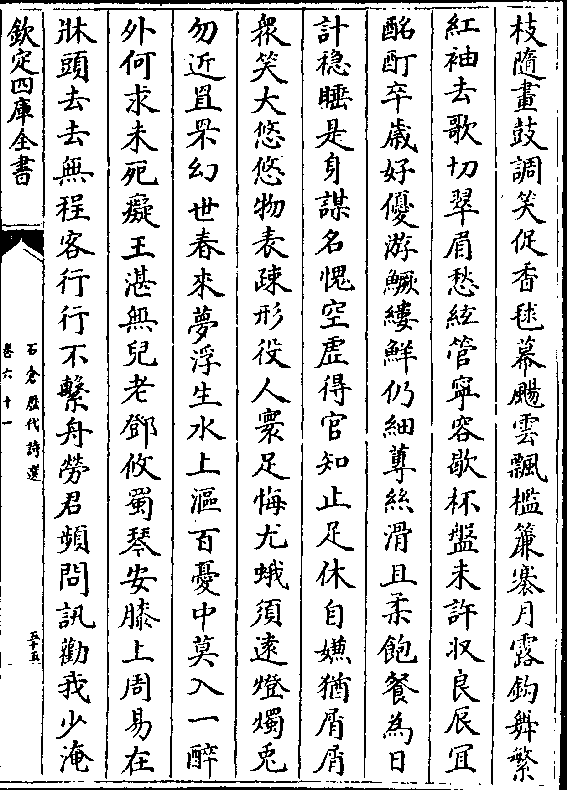 枝隨畫鼓調笑促香毬幕颺雲飄檻簾褰月露鈎舞繁
紅袖去歌切翠眉愁絃管寧容歇杯盤未許収良辰宜
酩酊卒歲好優游鱖縷鮮仍細蓴絲滑且柔飽餐為日
計穏睡是身謀名愧空虛得官知止足休自嫌猶屑屑
衆笑大悠悠物表疎形役人寰足悔尤蛾須逺燈燭兎
勿近罝罘幻世春來夢浮生水上漚百憂中莫入一醉
外何求未死癡王湛無兒老鄧攸蜀琴安膝上周易在
牀頭去去無程客行行不繫舟勞君頻問訊勸我少淹
欽定四庫全書
石倉歴代詩選
卷六十一
五十五